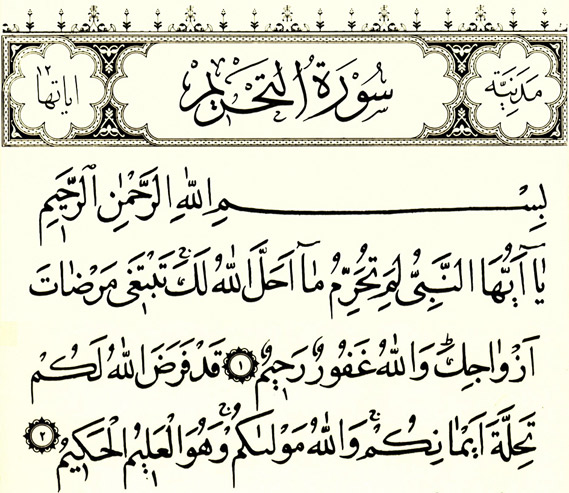 مَدَنِيَّة
سُورَةُ التَّحْرِيمِ
اٰيَاتُهَا ١٢
بِسْمِ اللّٰهِ الرَّحْمٰنِ الرَّحِيمِ
يَٓا اَيُّهَا النَّبِيُّ لِمَ تُحَرِّمُ مَٓا اَحَلَّ اللّٰهُ لَكَۚ تَبْتَغ۪ي مَرْضَاتَ
اَزْوَاجِكَۜ وَاللّٰهُ غَفُورٌ رَح۪يمٌ ﴿١﴾ قَدْ فَرَضَ اللّٰهُ لَكُمْ
تَحِلَّةَ اَيْمَانِكُمْۚ وَاللّٰهُ مَوْلٰيكُمْۚ وَهُوَ الْعَل۪يمُ الْحَك۪يمُ ﴿٢﴾